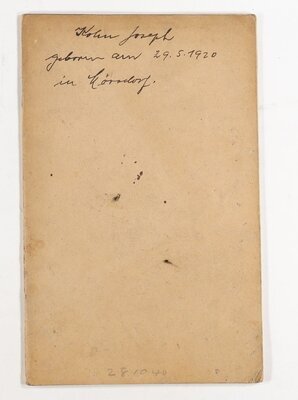 Kohn Joseph
geboren am 29.5.1920
in Lörsdorf.
281040